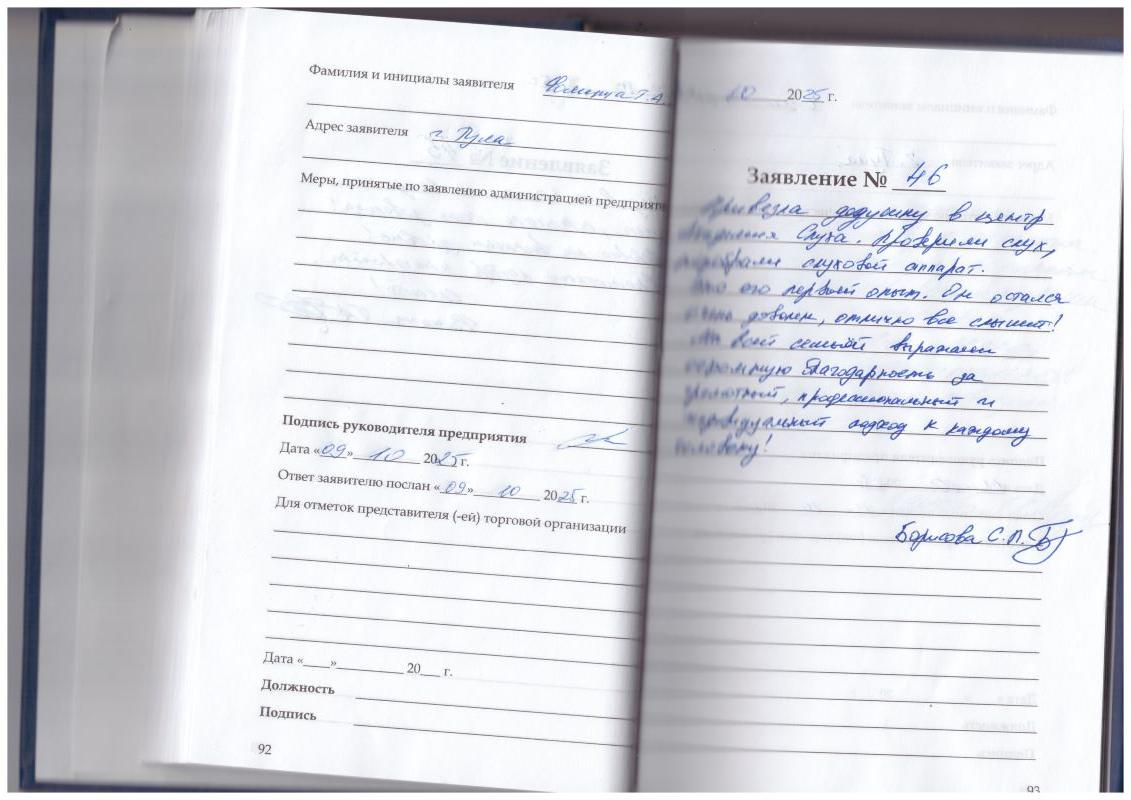 Фамилия и инициалы заявителя Фомина Т.А.
Адрес заявителя г. Тула
Меры, принятые по заявлению администрацией предприяти
Подпись руководителя предприятия
Дата «09» 10 2025 г.
Ответ заявителю послан «09» 10 2025 г.
Для отметок представителя (-ей) торговой организации
Дата «____»__________ 20___ г.
Должность
Подпись
92
10 2025 г.
Заявление № 46
Привезла дедушку в центр
Слуха. Проверили слух,
подобрали слуховой аппарат.
Это его первый опыт. Он остался
очень доволен, отлично все слышит!
всей семьёй выражаем
огромную благодарность за
грамотный, профессиональный и
индивидуальный подход к каждому
человеку!
Борисова С.П.
93